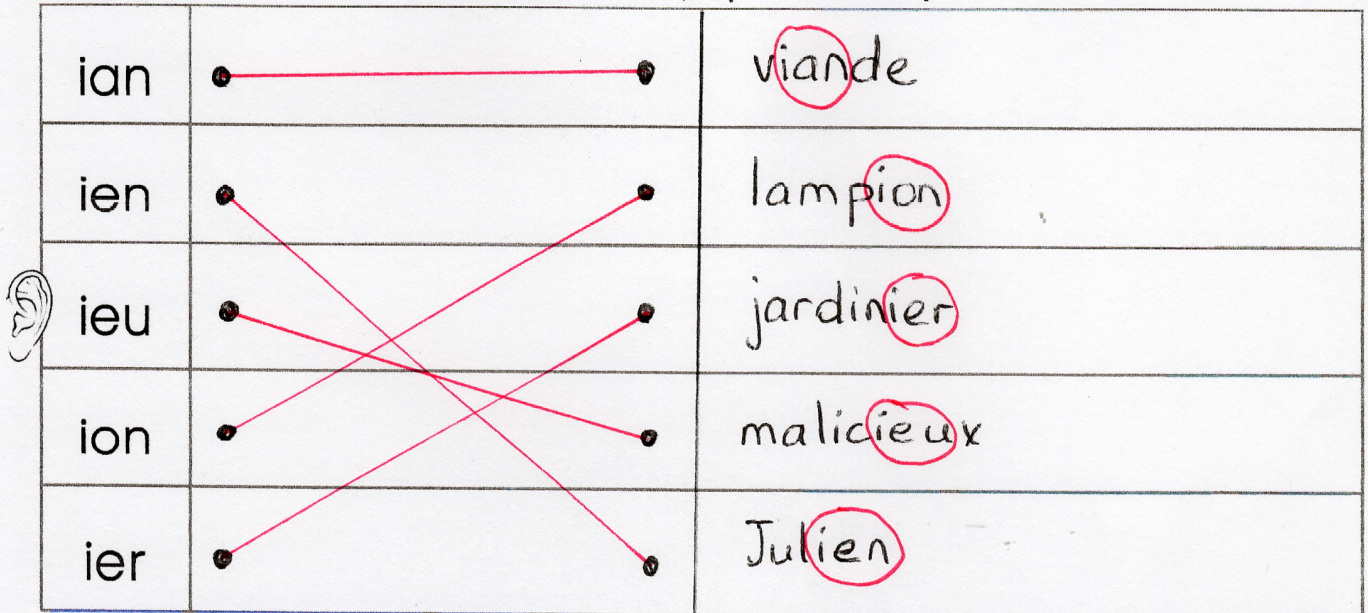 ian viande
ien lampion
ieu jardinier
ion malicieux
ier Julien